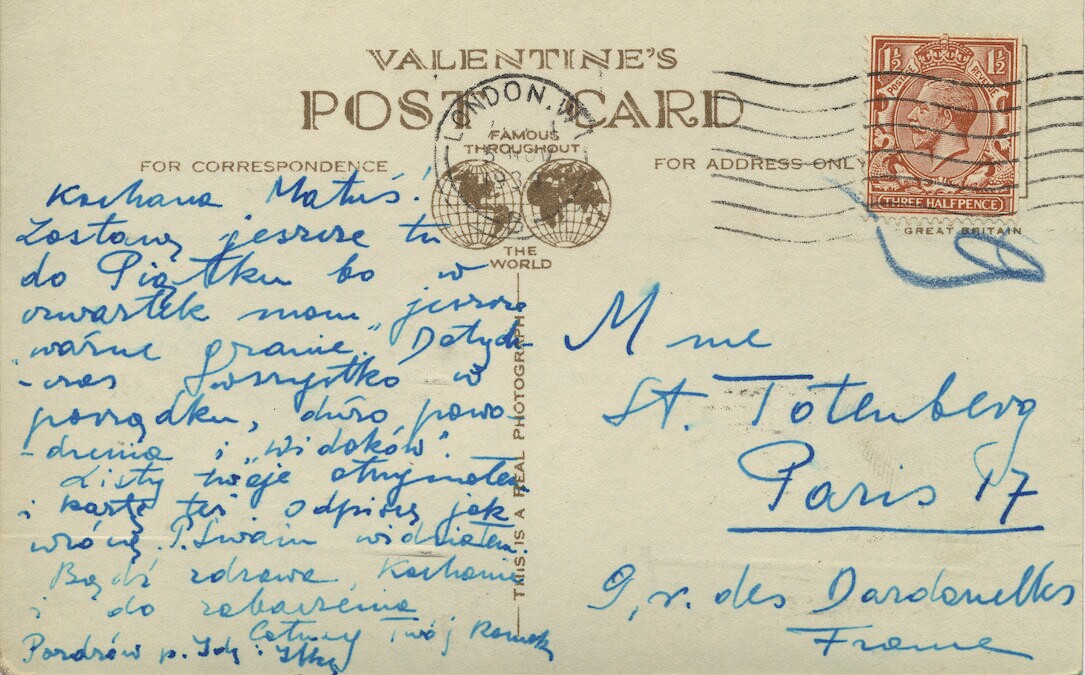 VALENTINE'S
POST CARD
LONDON.W1
FAMOUS
THROUGHOUT
THE
WORLD
FOR CORRESPONDENCE
FOR ADDRESS ONLY
1½ 1½
POSTAGE REVENUE
THREE HALFPENCE
GREAT BRITAIN
THIS IS A REAL PHOTOGRAPH
Kochana Matuś!
Zostanę jeszcze tu
do Piątku bo w
czwartek mam jeszcze
ważne granie. Dotych-
-czas wszystko w
porządku, dużo powo-
-dzenia i "widoków".
Listy twoje otrzymałem
i kartę też odpiszę jak
wrócę. P. widziałem.
Bądź zdrowa, Kochanie
i do zobaczenia
Całuję Twój Romek
Pozdrów p. Idę i
Mme
St. Totenberg
Paris 17
9, r. des Dardanelles
France